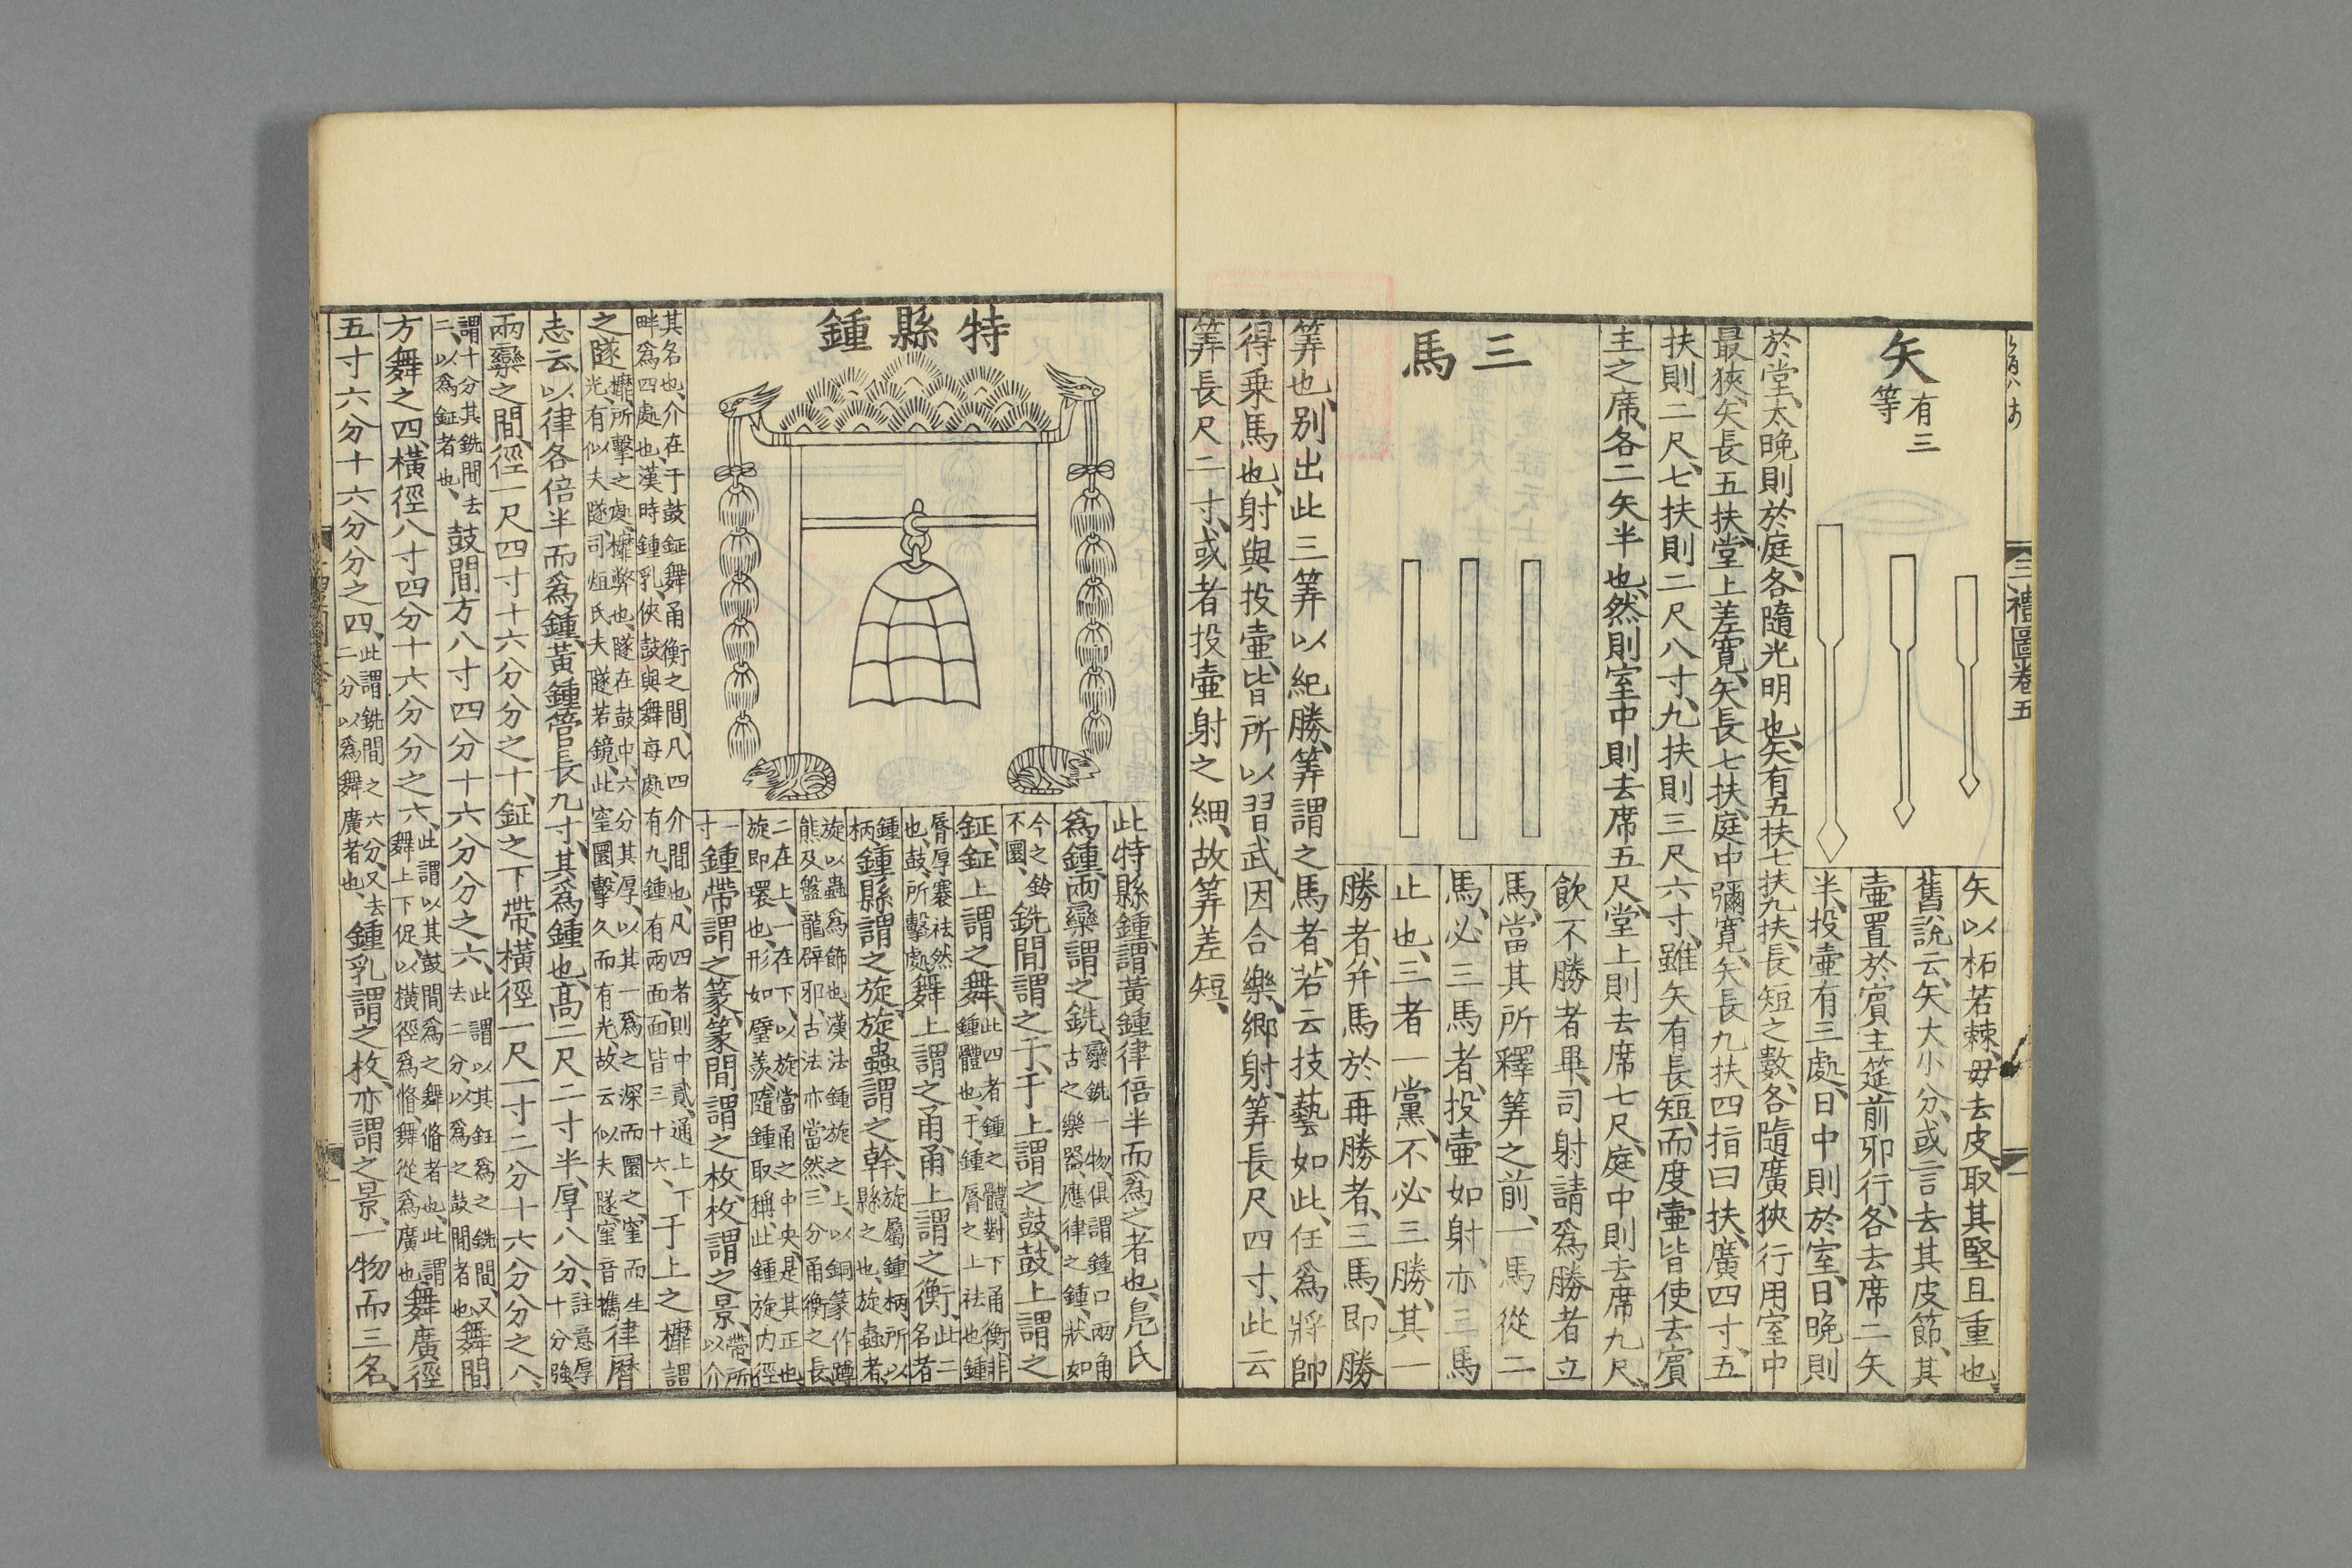 三禮圖卷五
矢
有三
等
矢以柘若棘、毋去皮、取其堅且重也、
舊說云、矢大小分、或言去其皮節、其
壷置於賓主筵前邪行、各去席二矢
半、投壷有三處、日中則於室、日晩則
於堂、太晩則於庭、各隨光明也、矢有五扶七扶九扶、長短之數、各隨廣狹行用室中
最狹、矢長五扶、堂上差寛、矢長七扶、庭中彌寛、矢長九扶四指曰扶、廣四寸、五
扶則二尺、七扶則二尺八寸、九扶則三尺六寸、雖矢有長短、而度壷皆使去賓
主之席、各二矢半也、然則室中則去席五尺、堂上則去席七尺、庭中則去席九尺、
三馬
飲不勝者畢、司射請爲勝者立
馬、當其所釋筭之前、一馬從二
馬、必三馬者、投壷如射、亦三馬
止也、三者一黨、不必三勝、其一
勝者、并馬於再勝者、三馬、即勝
筭也、別出此三筭以紀勝、筭謂之馬者、若云技藝如此、任爲將帥
得乗馬也、射與投壷、皆所以習武、因合樂、鄉射、筭長尺四寸、此云
筭長尺二寸、或者投壷射之細、故筭差短、
特縣鍾
此特縣鍾、謂黃鍾律倍半而爲之者也、鳧氏
爲鍾、兩欒謂之銑、欒銑一物、俱謂鍾口兩角
古之樂器、應律之鍾、狀如
今之鈴
不圜、銑間謂之于、于上謂之鼓、鼓上謂之
鉦、鉦上謂之舞、此四者鍾之體、對下甬衡非
鍾體也、于、鍾脣之上袪也、鍾
脣厚褰袪然
也、鼓、所擊處、舞上謂之甬、甬上謂之衡、此二
名者
鍾
柄、鍾縣謂之旋、旋蟲謂之幹、旋屬鍾柄、所以
縣之也、旋蟲者、
旋以蟲爲飾也、漢法鍾旋之上、以銅篆作蹲
熊及盤龍辟邪、古法亦當然、三分甬衡之長、
二在上、一在下、以旋當甬之中央、是其正也、
旋即環也、形如璧羨、隨鍾取稱、此鍾旋内徑
一
寸鍾帶謂之篆、篆間謂之枚、枚謂之景、帶、所
以介
其名也、介在于鼓鉦舞甬衡之間、凡四
介間也、凡四者則中貳、通上下
畔爲四處也、漢時鍾乳、俠鼓與舞、每處
有九、鍾有兩面、面皆三十六、于上之㩢謂
之隧、㩢、所擊之處、㩢弊也、隧在鼓中、六分其厚、以其一爲之深而圜之、窐而生
光、有似夫隧、司烜氏夫隧若鏡、此窐圜、擊久而有光、故云似夫隧、窐音攜律曆
志云、以律各倍半而爲鍾、黃鍾管長九寸、其爲鍾也、高二尺二寸半、厚八分、註意厚
十分強、
兩欒之間、徑一尺四寸十六分分之十、鉦之下帶、橫徑一尺一寸二分十六分分之八、
謂十分其銑間去
二、以爲鉦者也、鼓間方八寸四分十六分分之六、此謂以其鉦爲之銑間、又
去二分、以爲之鼓間者也舞間
方舞之四、橫徑八寸四分十六分分之六、此謂以其鼓間爲之舞脩者也、此謂
舞上下促、以橫徑爲脩舞從爲廣也舞廣徑
五寸六分十六分分之四、此謂銑間之六分、又去
二分以爲舞廣者也、鍾乳謂之枚、亦謂之景、一物而三名、